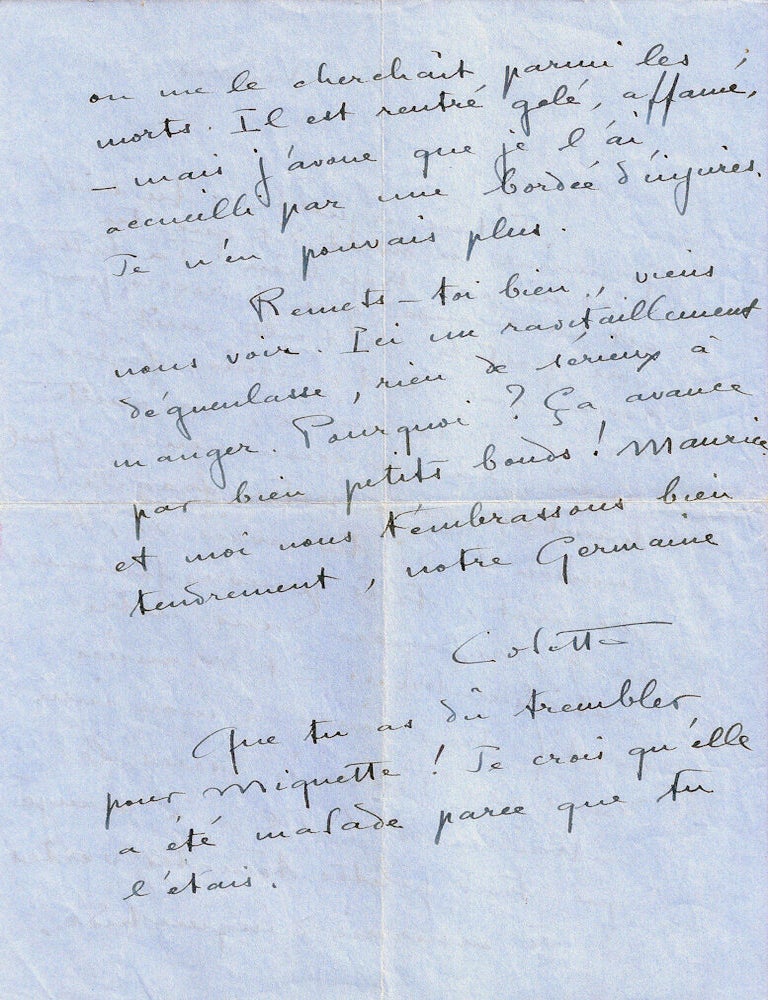 on me le cherchât parmi les
morts. Il est rentré gelé, affamé,
– mais j'avoue que je l'ai
accueilli par une bordée d'injures.
Je n'en pouvais plus.
Remets-toi bien, viens
nous voir. Ici un ravitaillement
dégueulasse, rien de sérieux à
manger. Pourquoi ? Ça avance
par bien petits bonds ! Maurice
et moi nous t'embrassons bien
tendrement, notre Germaine
Colette
Que tu as dû trembler
pour Miquette ! Je crois qu'elle
a été malade parce que tu
l'étais.